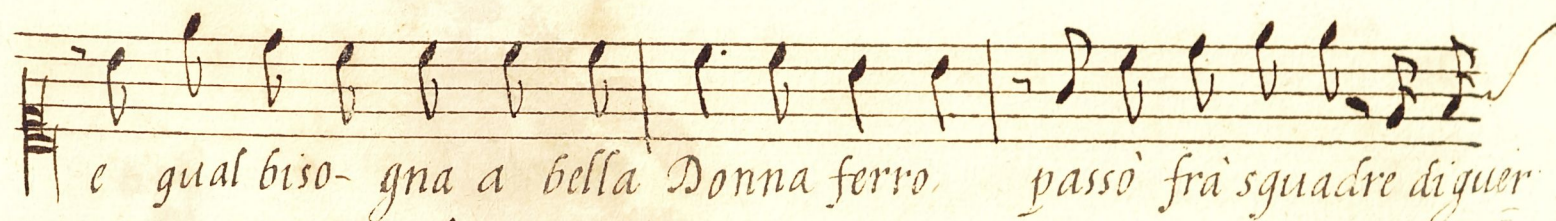 e qual biso- gna a bella Donna ferro. passò frà squadre di guer